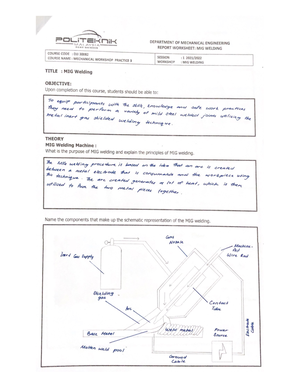 POLITEKNIK
DEPARTMENT OF MECHANICAL ENGINEERING
REPORT WORKSHEET: MIG WELDING
COURSE CODE
COURSE NAME : MECHANICAL WORKSHOP PRACTICE
SESSION
WORKSHOP : MIG WELDING
TITLE : MIG Welding
OBJECTIVE:
Upon completion of this course, students should be able to:
To equip participants with the skills, knowledge and safe work practices
they need to perform a variety of mild steel welded joins utilising the
metal inert gas shielded welding technique.
THEORY
MIG Welding Machine :
What is the purpose of MIG welding and explain the principles of MIG welding.
The MIG welding procedure is based on the idea that an arc is created
between a metal electrode that is consumable and the workpiece using
the technique. The arc created generates a lot of heat, which is then
utilised to fuse the two metal pieces together.
Name the components that make up the schematic representation of the MIG welding.
Gas
Nozzle
Gas Supply
Wire Rod
Shielding
gas
Arc
Contact
Tube
Base Metal
Weld metal
Power
Source
Molten weld pool
Ground
Cable
Electrode
Cable